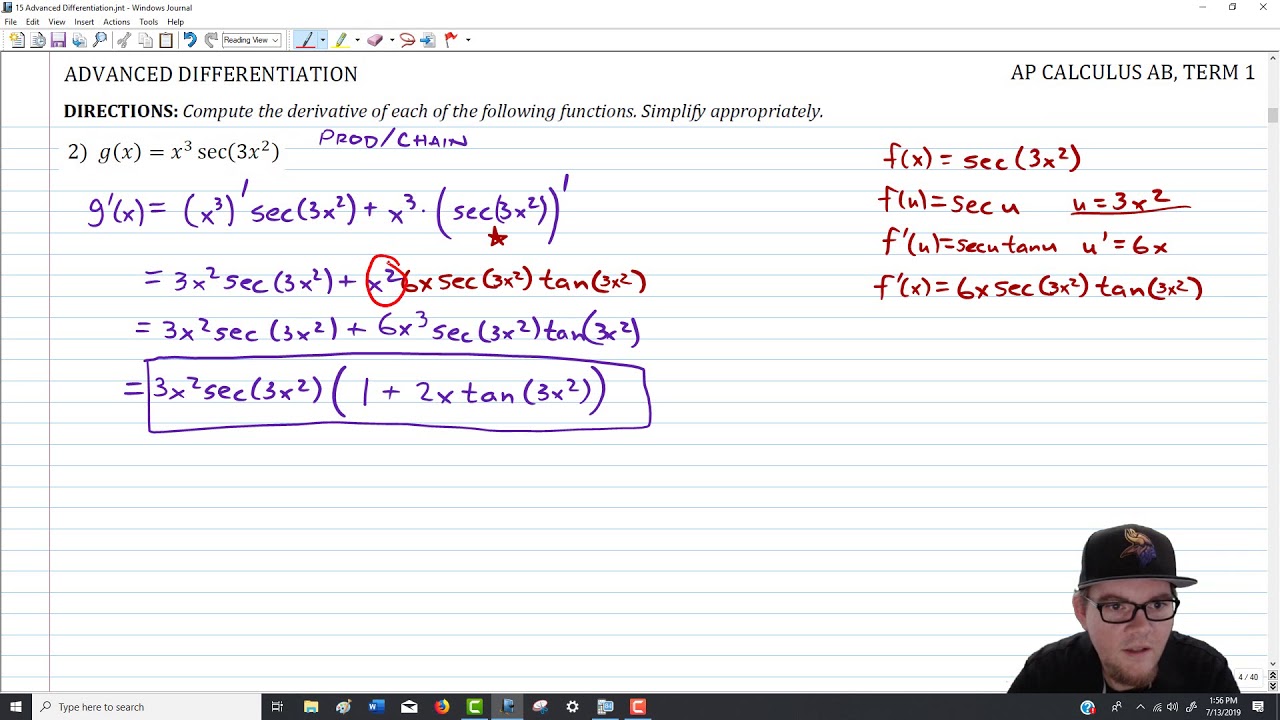 15 Advanced Differentiation.jnt - Windows Journal
File Edit View Insert Actions Tools Help
Reading View
ADVANCED DIFFERENTIATION
AP CALCULUS AB, TERM 1
DIRECTIONS: Compute the derivative of each of the following functions. Simplify appropriately.
PROD/CHAIN
2) g(x) = x³ sec(3x²)
g'(x) = (x³)' sec(3x²) + x³ · (sec(3x²))'
= 3x² sec(3x²) + x² 6x sec(3x²) tan(3x²)
= 3x² sec(3x²) + 6x³ sec(3x²) tan(3x²)
= 3x² sec(3x²) (1 + 2x tan(3x²))
f(x) = sec(3x²)
f(u) = sec u u = 3x²
f'(u) = sec u tan u u' = 6x
f'(x) = 6x sec(3x²) tan(3x²)
4 / 40
Type here to search
1:56 PM
7/13/2019